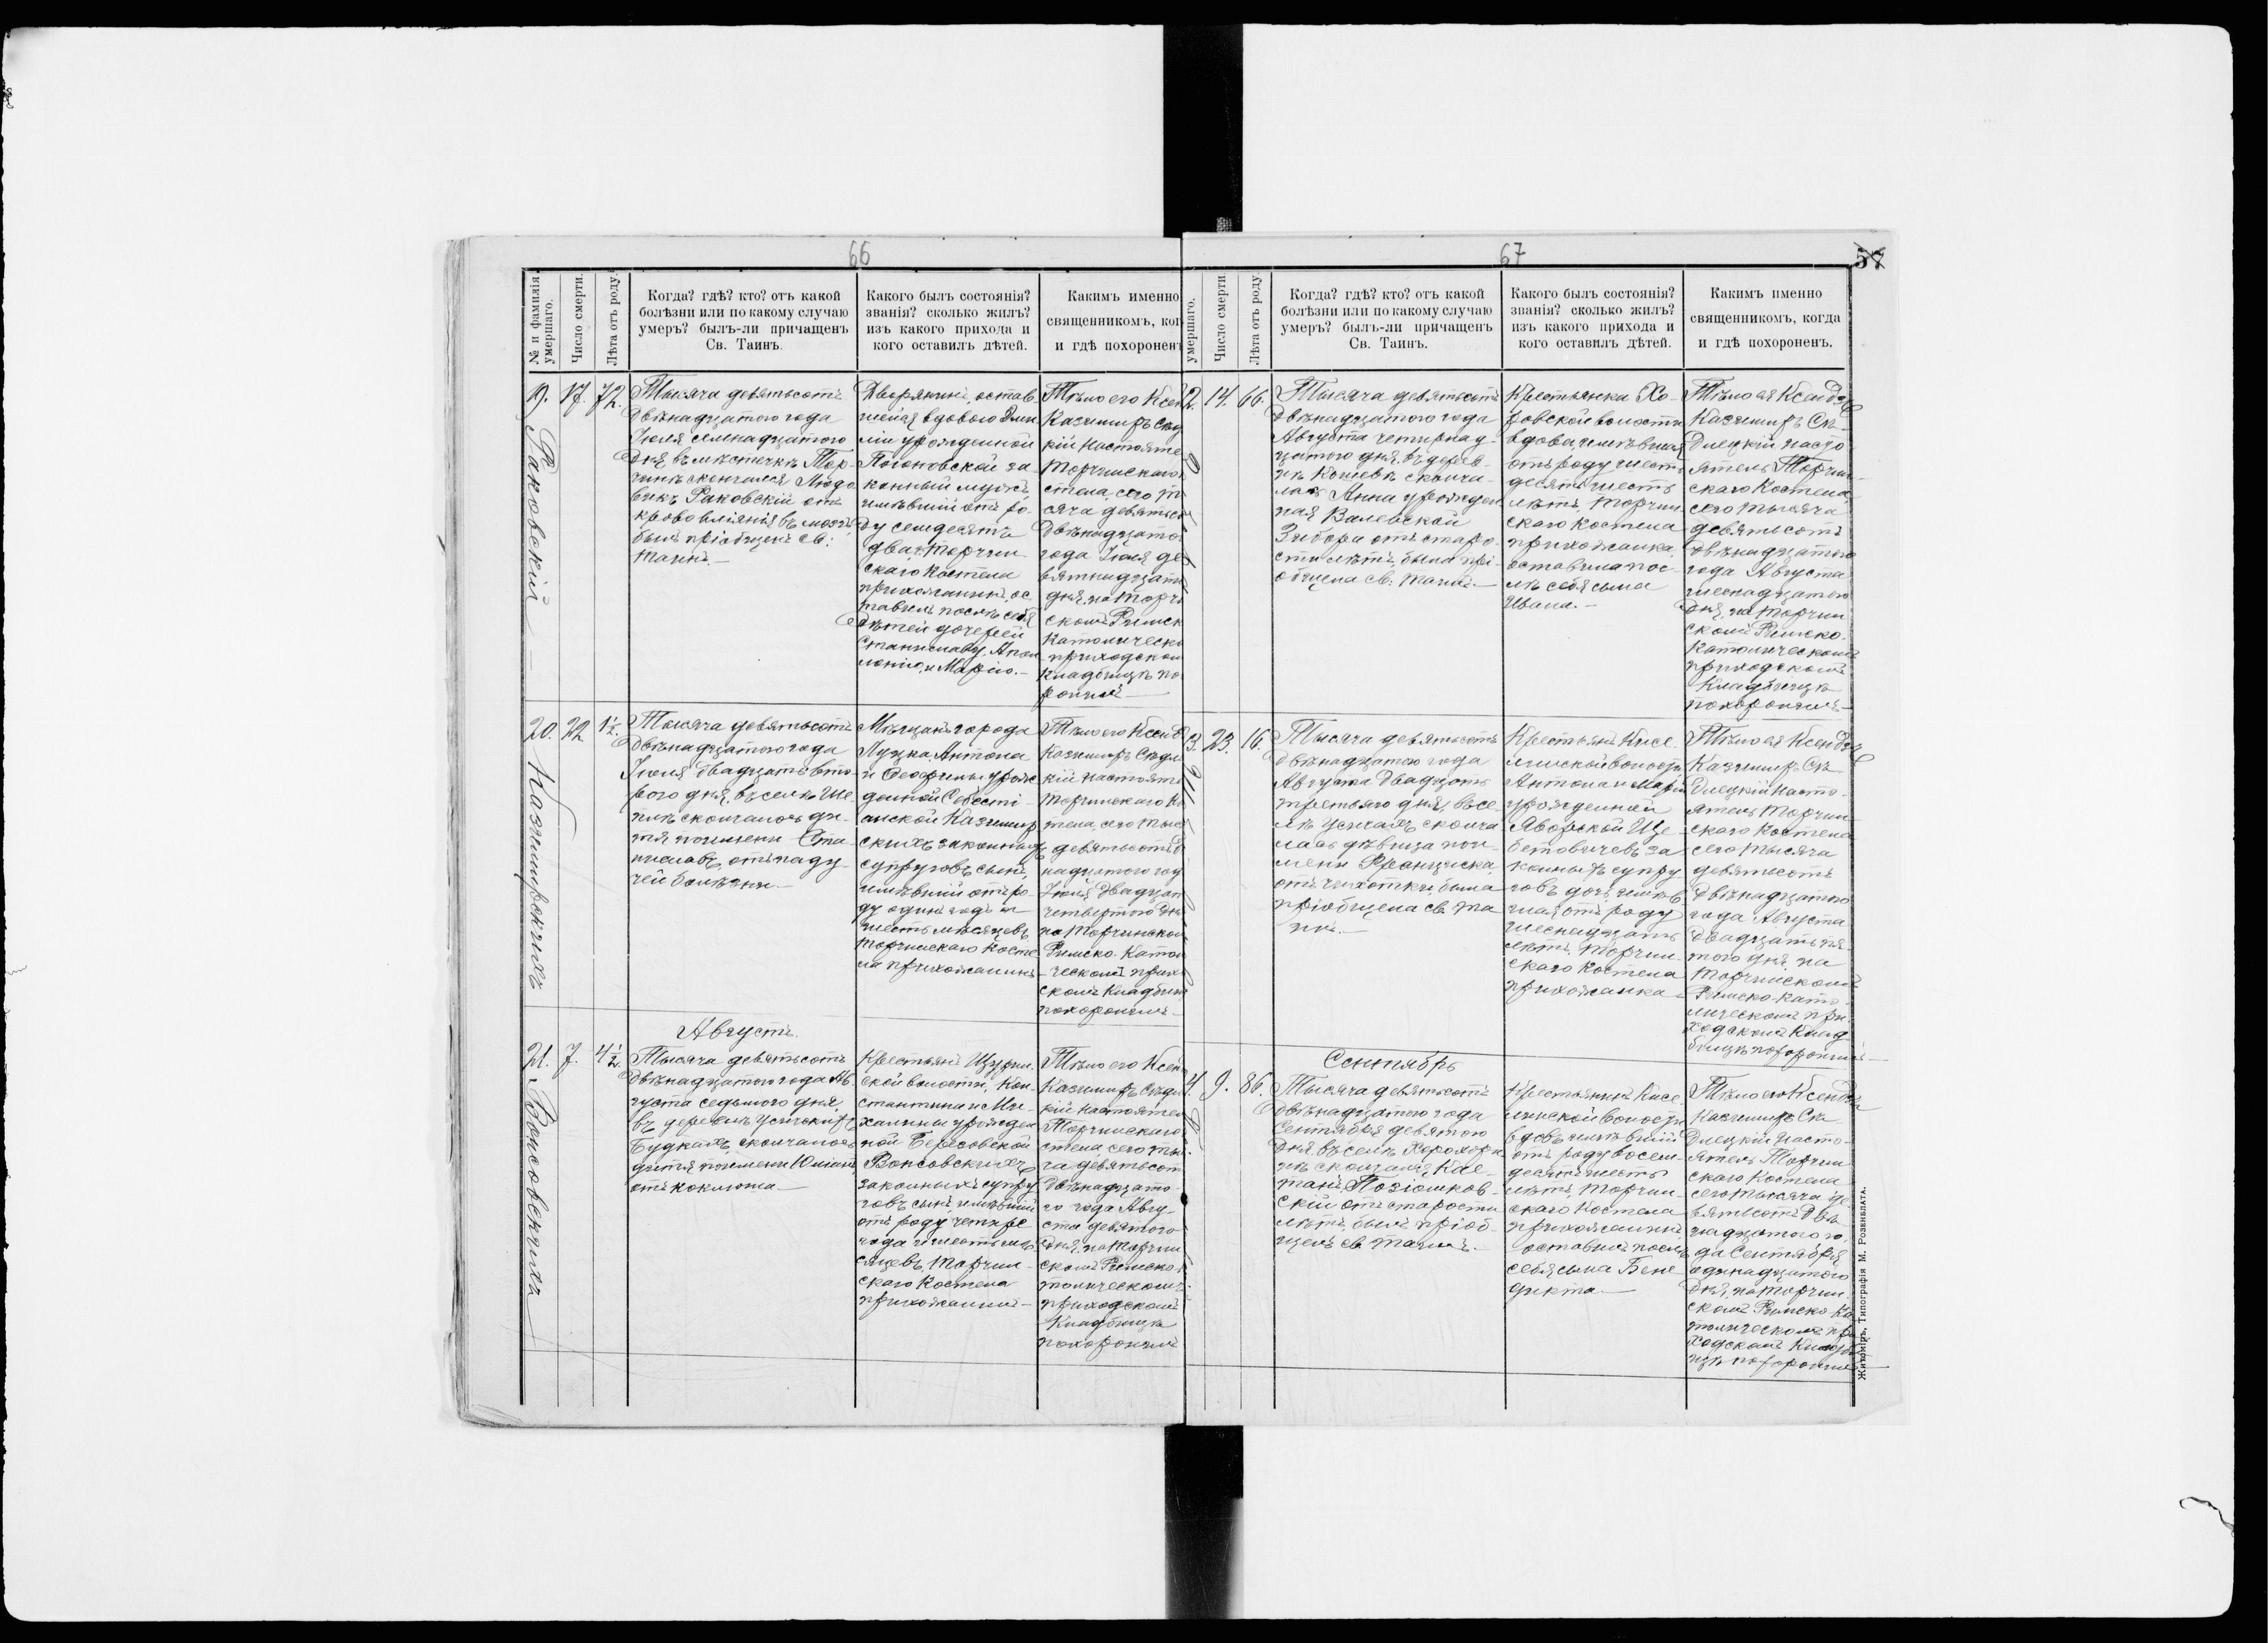 66
№ и фамилія умершаго.
Число смерти.
Лѣта отъ роду.
Когда? гдѣ? кто? отъ какой
болѣзни или по какому случаю
умеръ? былъ-ли причащенъ
Св. Таинъ.
Какого былъ состоянія?
званія? сколько жилъ?
изъ какого прихода и
кого оставилъ дѣтей.
Какимъ именно
священникомъ, ког
и гдѣ похоронен
19.
Раковскій
17.
72.
Тысяча девятьсотъ
двѣнадцатого года
Іюля семнадцатого
дня, въ мѣстечкѣ Тор-
чинѣ скончался Людо
викъ Раковскій отъ
крово вліянія въ мозгъ,
былъ пріобщенъ Св:
Таинъ.—
Дворянинъ, остав
мужъ,
имѣвшій отъ ро-
ду семдесятъ
два, Торчин
скаго Костела
прихожанинъ, ос
тавилъ послѣ себя
дѣтей дочерей
Станиславу, Апол
лонію, и Марію.—
Тѣло его Ксен
Казимиръ Сѣд
кій Настояте
Торчинскаго
стела, сего ты
сяча девятьсо
двѣнадцато
года Іюля де
вятнадцата
дня, на Торчи
скомъ Римск
Католическ
приходском
кладбищѣ по
ронилъ—
20.
Казимирскихъ
22
1½.
Тысяча девятьсотъ
двѣнадцатого года
Іюля двадцать вто-
рого дня, въ селѣ Ше-
пелѣ скончалось ди-
тя по имени Ста-
ниславъ, отъ паду-
чей болѣзни.—
Мѣщанъ города
Луцка, Антона
и Теофилы урож
денной
Казимир
скихъ законныхъ
супруговъ сынъ,
имѣвшій отъ ро-
ду одинъ годъ и
шесть мѣсяцевъ
Торчинскаго Косте
ла прихожанинъ
Тѣло его Ксенд
Казимиръ Сѣдл
кій настояте
Торчинскаго Ко
стела, сего тыс
девятьсотъ д
надцатого год
Іюля двадцат
четвертого дня
на Торчинском
Римско-Катол
ческомъ прих
скомъ Кладбищ
похоронилъ—
Августъ.
21.
Вонсовскихъ
7.
4½.
Тысяча девятьсотъ
двѣнадцатого года Ав-
густа седьмого дня,
въ деревнѣ Усичскихъ
Будкахъ, скончалось
дитя по имени Юліанъ
отъ коклюша—
Крестьянъ
ской волости, Кон-
стантина и Ми-
халины урожден
ной Бересовской
Вонсовскихъ
законныхъ супру
говъ сынъ, имѣвшій
отъ роду четыре
года и шесть мѣ-
сяцевъ, Торчин-
скаго Костела
прихожанинъ—
Тѣло его Ксен
Казимиръ Сѣд
кій настоятел
Торчинскаго
стела, сего ты
ча девятьсот
двѣнадцато-
го года Авгу-
ста девятого
дня, на Торчин
скомъ Римско
толическомъ
приходскомъ
Кладбищѣ
похоронилъ
67
57
умершаго.
Число смерти.
Лѣта отъ роду.
Когда? гдѣ? кто? отъ какой
болѣзни или по какому случаю
умеръ? былъ-ли причащенъ
Св. Таинъ.
Какого былъ состоянія?
званія? сколько жилъ?
изъ какого прихода и
кого оставилъ дѣтей.
Какимъ именно
священникомъ, когда
и гдѣ похороненъ.
2.
14.
66.
Тысяча девятьсотъ
двѣнадцатого года
Августа четырнад-
цатого дня, въ дерев-
нѣ Кошевѣ сконча-
лась Анна урожден
ная Валевской
Зибора отъ старо-
сти лѣтъ, была прі-
общена Св: Таинъ.—
Крестьянка Хо-
ровской волости
вдова, имѣвшая
отъ роду шесть
десятъ шесть
лѣтъ, Торчин
скаго Костела
прихожанка,
оставила пос-
лѣ себя сына
Ивана.—
Тѣло ея Ксендзъ
Казимиръ Сѣ-
длецкій насто
ятель Торчин-
скаго Костела
сего тысяча
девятьсотъ
двѣнадцатого
года Августа
шеснадцатого
дня, на Торчин
скомъ Римско-
Католическомъ
приходскомъ
Кладбищѣ
похоронилъ—
3.
23.
16.
Тысяча девятьсотъ
двѣнадцатого года
Августа двадцать
третьяго дня, въ се-
лѣ Усичахъ сконча
лась дѣвица по и-
мени Франциска,
отъ чахотки, была
пріобщена Св. Та
инъ.—
Крестьянъ Кисе
линской волости
Антона и Маріи
урожденной
Яворской Ще-
бетовичевъ за
конныхъ супру
говъ дочь, имѣв
шая отъ роду
шеснадцать
лѣтъ, Торчин-
скаго Костела
прихожанка—
Тѣло ея Ксендзъ
Казимиръ Сѣ
длецкій насто-
ятель Торчин-
скаго Костела
сего тысяча
девятьсотъ
двѣнадцатого
года Августа
двадцать пя-
того дня, на
Торчинскомъ
Римско-Като-
лическомъ при
ходскомъ Клад
бищѣ похоронилъ—
Сентябрь
4.
9.
86.
Тысяча девятьсотъ
двѣнадцатого года
Сентября девятого
дня, въ селѣ
скончался Кае-
танъ Позіомков-
скій отъ старости
лѣтъ, былъ пріоб-
щенъ Св. Таинъ.—
Крестьянинъ Кисе
линской волости
вдовъ, имѣвшій
отъ роду восем
десятъ шесть
лѣтъ, Торчин-
скаго Костела
прихожанинъ
оставилъ послѣ
себя сына Бене-
дикта.—
Тѣло его Ксендзъ
Казимиръ Сѣ
длецкій насто-
ятель Торчин
скаго Костела
сего тысяча де
вятьсотъ двѣ-
надцатого го
да Сентября
одинадцатого
дня, на Торчин
скомъ Римско-Ка
толическомъ при
ходскомъ Кладби
щѣ похоронилъ
Житомiръ, Типографія М. Розенблата.